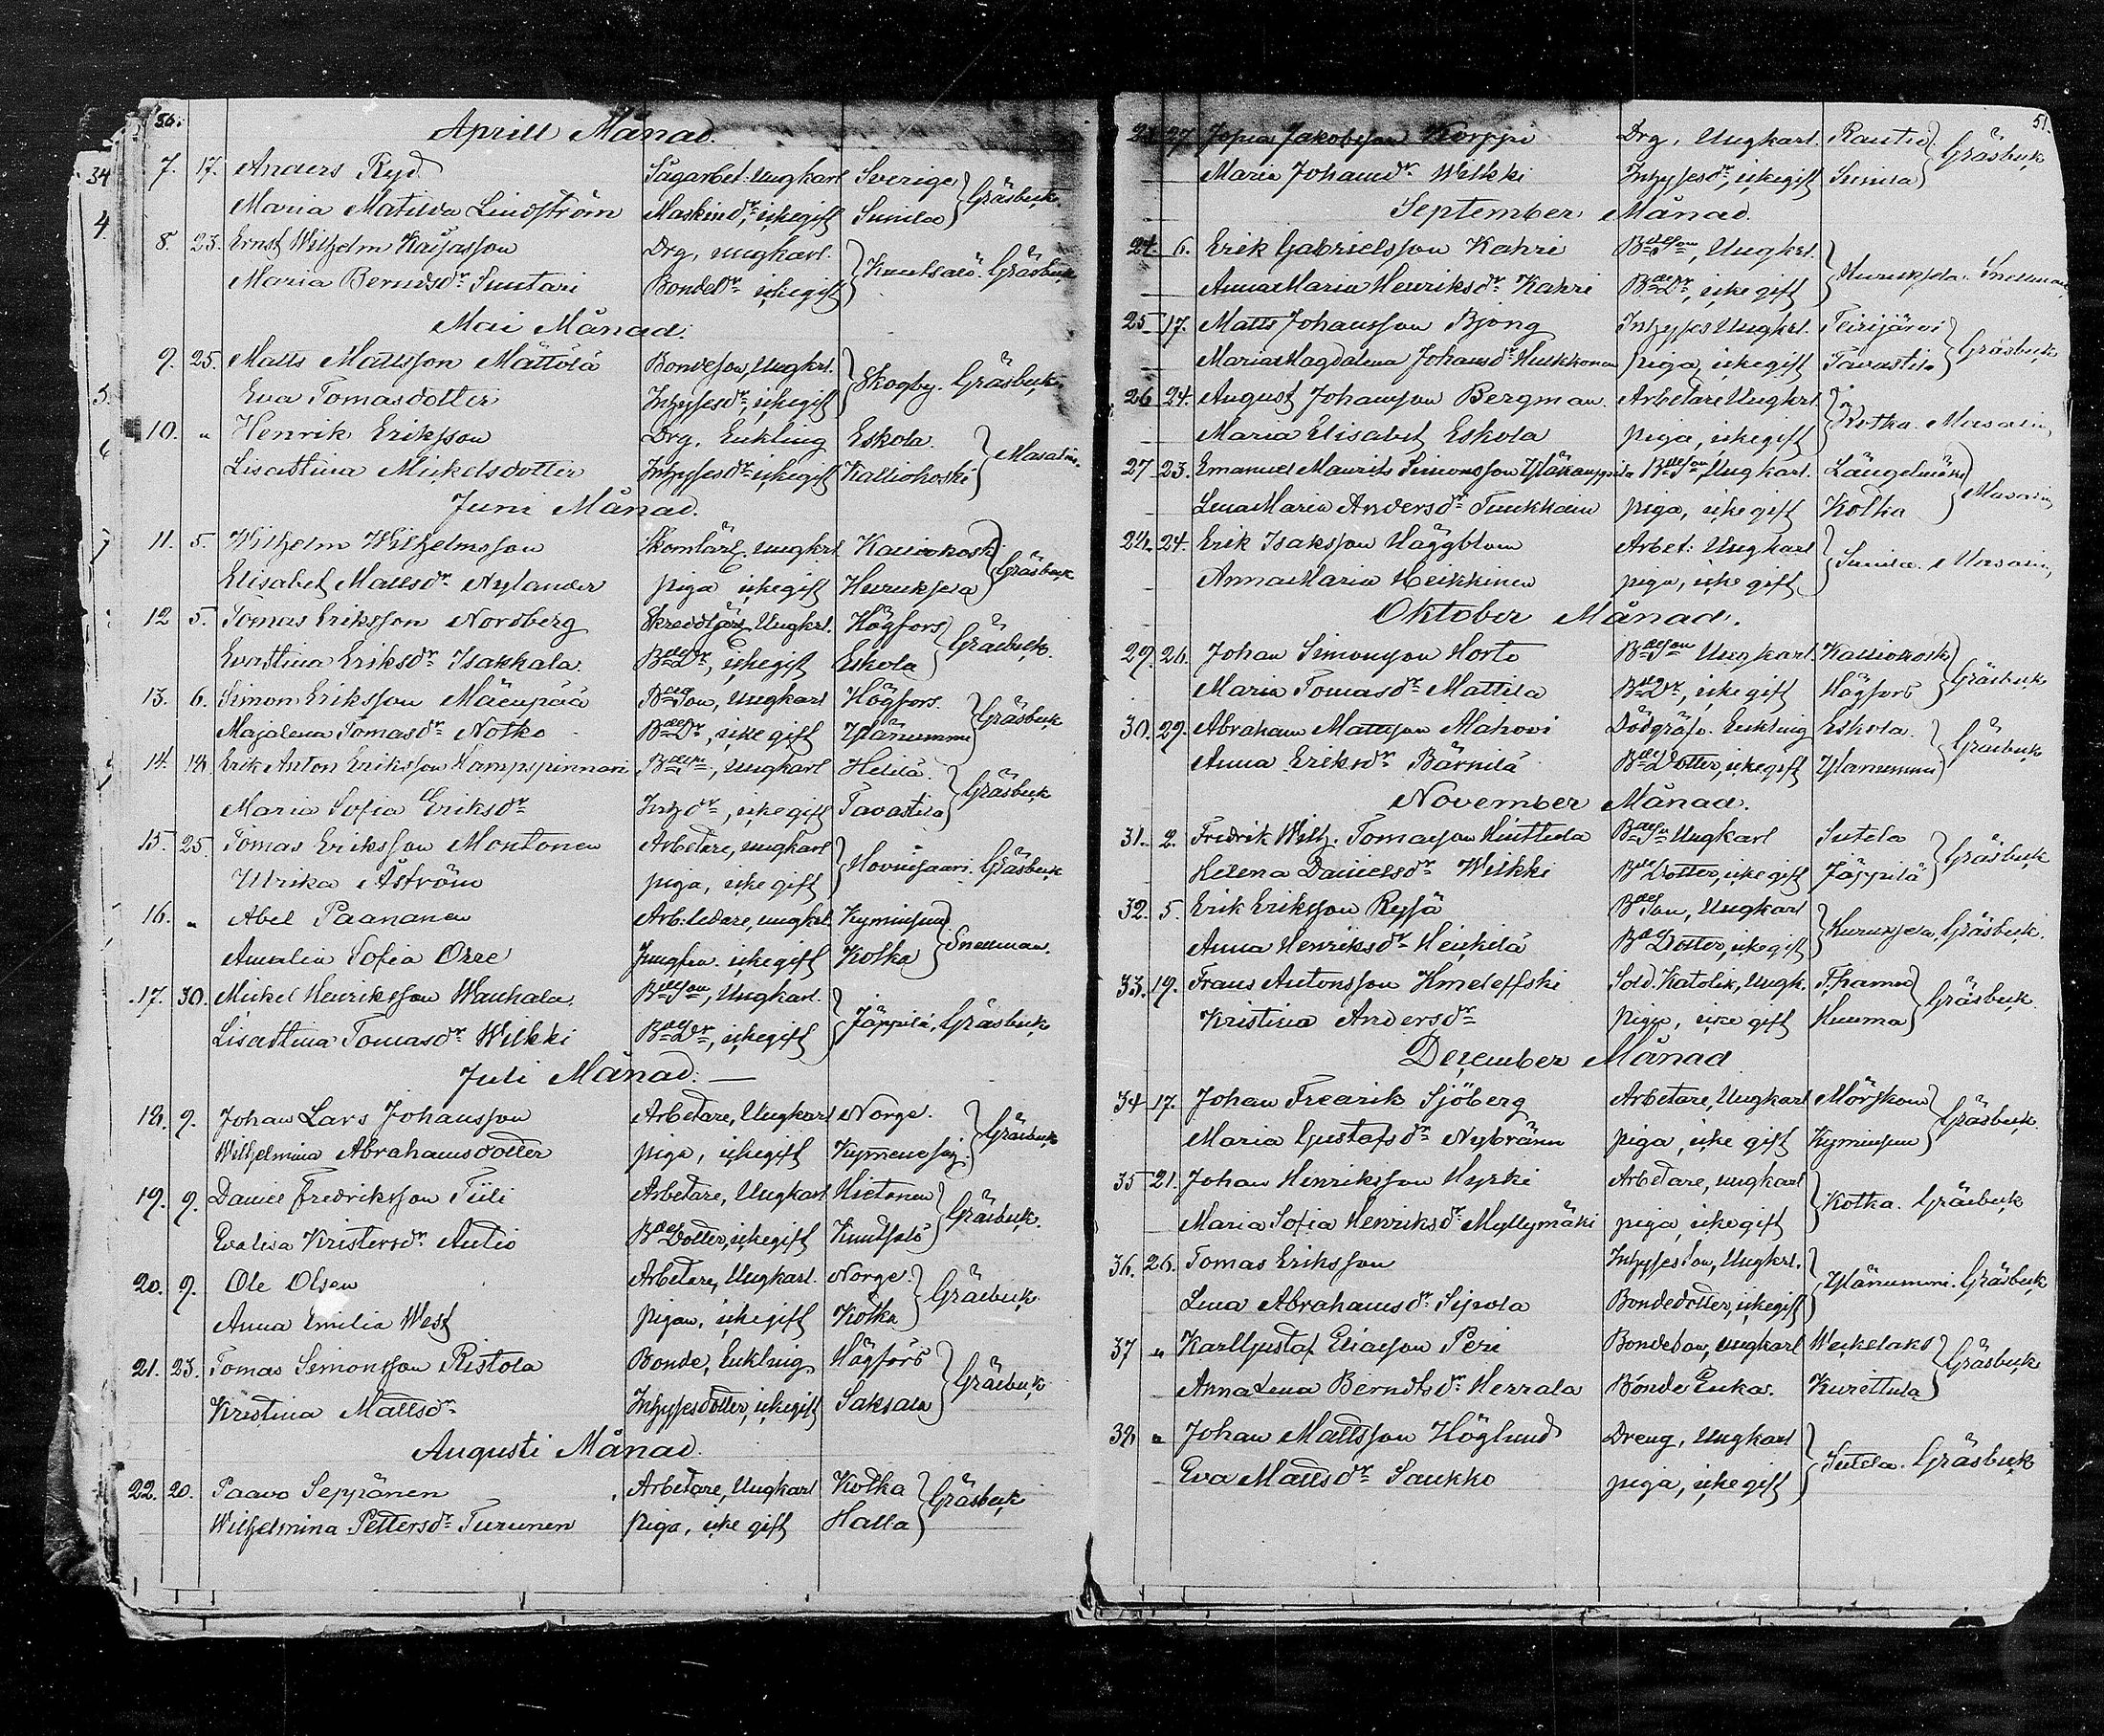 50.
Aprill Månad.
7. 17. Anders Ryd Sågarbet: ungkarl Sverige Gräsbeck.
Maria Matilda Lindström Maskindr, icke gift Sunila
8. 23. Ernst Wilhelm Kaijasson Drg, ungkarl. Knutsalö. Gräsbeck
Maria Berndsdr Suntari Bondedr icke gift
Mai Månad.
9. 25. Matts Mattsson Mättölä Bondeson, Ungkrl. Skogby. Gräsbeck
Eva Tomasdotter Inhysesdr, icke gift
10. " Henrik Eriksson Drg, Enkling Eskola. Masalin.
Lisa Stina Mickelsdotter Inhysesdr icke gift Kalliokoski
Juni Månad.
11. 5. Wilhelm Wilhelmsson Skomlärl. ungkrl. Kalliokoski Gräsbeck
Elisabet Mattsdr Nylander piga icke gift Hurukjela
12 5. Tomas Eriksson Nordberg Skreddlärl Ungkrl. Högfors Gräsbeck.
Eva Stina Eriksdr Isakkala Bdedr, icke gift Eskola
13. 6. Simon Eriksson Mäenpää Bdeson, Ungkarl Högfors. Gräsbeck
Maja Lena Tomasdr Notko Bdedr, icke gift Ylänummi
14. 18. Erik Anton Eriksson Kampspinnari Bdeson, Ungkarl Helilä. Gräsbeck
Maria Sofia Eriksdr Inhdr, icke gift Tavastila
15. 25. Tomas Eriksson Montonen Arbetare, ungkarl Hovinsaari. Gräsbeck
Ulrika Åström piga, icke gift
16. " Abel Paananen Arb:ledare, ungkrl Kyminsuu Snellman.
Amalia Sofia Orre Jungfru. icke gift Kotka
17. 30. Mickel Henriksson Wanhala Bdeson, Ungkarl. Jäppilä, Gräsbeck
Lisa Stina Tomasdr Wilkki Bdedr, icke gift
Juli Månad. —
18. 9. Johan Lars Johansson Arbetare, Ungkarl Norge. Gräsbeck
Wilhelmina Abrahamsdotter piga, icke gift
19. 9. Daniel Fredriksson Tiili Arbetare, Ungkarl Hietanen Gräsbeck.
Eva Lisa Kristersdr Autio Bdedotter, icke gift Knutsalö
20. 9. Ole Olsen Arbetare, Ungkarl. Norge. Gräsbeck
Anna Emilia West Pigan, icke gift Kotka
21. 23. Tomas Simonsson Ristola Bonde, Enkling Högfors Gräsbeck
Kristina Mattsdr Inhysesdotter, icke gift Saksala
Augusti Månad.
22. 20. Paavo Seppänen Arbetare, Ungkarl Kotka Gräsbeck
Wilhelmina Pettersdr Turunen Piga, icke gift Halla
51.
23 27 Jakobsson Korppi Drg, Ungkarl. Rautio Gräsbeck
Maria Johansdr Wilkki Inhysesdr, icke gift Sunila
September Månad.
24. 6. Erik Gabrielsson Kahri Bdeson, Ungkrl. Hurukjela. Snellman
Anna Maria Henriksdr Kahri Bdedr, icke gift
25 17. Matts Johansson Bjong Inhyses Ungkrl. Teirijärvi Gräsbeck
Maria Magdalena Johansdr Hukkonen piga, icke gift Tavastila
26 24. August Johansson Bergman. Arbetare Ungkrl. Kotka. Masalin
Maria Elisabet Eskola piga, icke gift
27 23. Emanuel Maurits Simonsson Yläkauppila Bdeson Ungkarl. Längelmäki Masalin
Lena Maria Andersdr Tuukkain piga, icke gift Kotka
28. 24. Erik Isaksson Häggblom Arbet: Ungkarl Sunila. Masalin
Anna Maria Heikkinen piga, icke gift
Oktober Månad.
29. 26. Johan Simonsson Horto Bdeson Ungkarl. Kalliokoski Gräsbeck
Maria Tomasdr Mattila Bdedr, icke gift Högfors
30. 29. Abraham Mattsson Mahovi Dödgräfv. Enkling Eskola. Gräsbeck
Anna Eriksdr Bärnilä Bdedotter, icke gift Ylänummi
November Månad.
31. 2. Fredrik Wilh. Tomasson Hinttula Bdeson Ungkarl Sutela Gräsbeck
Helena Danielsdr Wilkki Bdedotter, icke gift Jäppilä
32. 5. Erik Eriksson Ryssä Bdeson, Ungkarl Hurukjela, Gräsbeck.
Anna Henriksdr Heickilä Bdedotter, icke gift
33. 19. Frans Antonsson Hmeleffski Sold. Katolik, Ungk. F.hamn Gräsbeck
Kristina Andersdr Piga, icke gift Huuma
December Månad
34 17. Johan Fredrik Sjöberg Arbetare, Ungkarl Mörskom Gräsbeck
Maria Gustafsdr Nybränn piga, icke gift Kyminsuu
35 21. Johan Henriksson Hyrki Arbetare, ungkarl Kotka. Gräsbeck
Maria Sofia Henriksdr Myllymäki piga, icke gift
36. 26. Tomas Eriksson Inhyseson, Ungkrl. Ylänummi. Gräsbeck
Lena Abrahamsdr Sipola Bondedotter, icke gift
37 " Karl Gustaf Eliasson Peri Bondeson, ungkarl Weckelaks Gräsbeck
Anna Lena Berndtsdr Herrala Bonde Enka. Kurettula
38 " Johan Mattsson Höglund Dreng, Ungkarl Sutela. Gräsbeck
Eva Mattsdr Saukko piga, icke gift